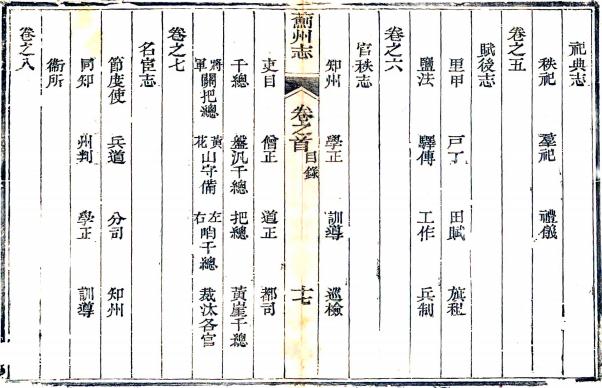 祀典志
秩祀 羣祀 禮儀
卷之五
賦後志
里甲 戸丁 田賦 旗租
鹽法 驛傳 工作 兵制
卷之六
官秩志
知州 學正 訓導 巡檢
薊州志 卷之音 目錄 十七
吏目 僧正 道正 都司
千總 盤汎千總 把總 黃崖千總
將軍關把總 黃花山守備 左右哨千總 裁汰各官
卷之七
名宦志
節度使 兵道 分司 知州
同知 州判 學正 訓導
衞所
卷之八